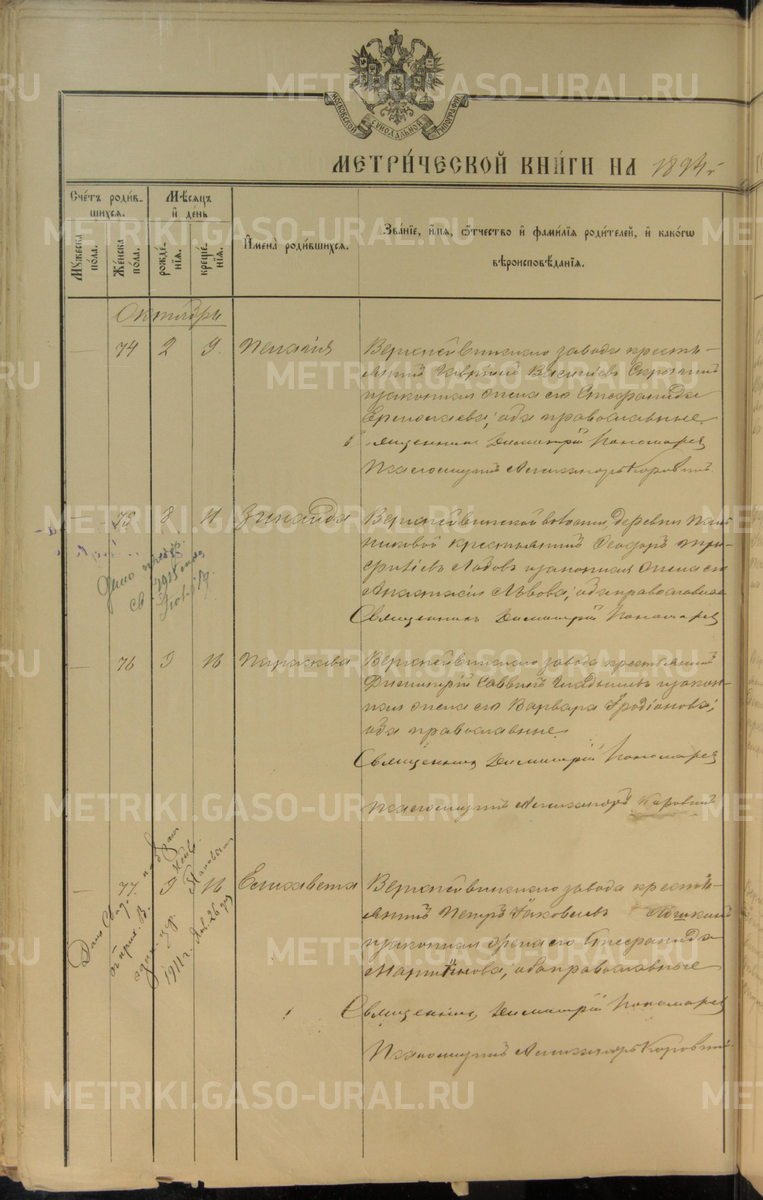 METRIKI.GASO-URAL.RU
МОСКОВСКОЙ СѴНОДАЛЬНОЙ ТИПОГРАФІИ
МЕТРИ́ЧЕСКОЙ КНИ́ГИ НА 1894 г.
Сче́тъ роди́вшихся.
Мѣ́сяцъ и день
Му́жеска по́ла.
Же́нска по́ла.
рожде́нїѧ.
креще́нїѧ.
И҆мена̀ роди́вшихсѧ.
Зва́нїе, и҆́мѧ, ѻ҆́тчество и҆ фами́лїѧ роди́телей, и҆ како́гѡ
вѣроисповѣ́данїѧ.
Октябрь
— 74 2 9. Пелагія
Верхнейвинскаго завода кресть-
янинъ Василіевъ
и законная жена его Стефанида
Ермолаева; оба православные
Священникъ Димитрій Пономарев
Псаломщикъ Александръ Коровинъ
— 75 8 11 Зинаида
Верхнейвинской волости, деревни
крестьянинъ Феодоръ
и законная жена его
Анастасія Львова; оба православные
Священникъ Димитрій Пономарев
Дано
1915 года
— 76 9 16 Параскева
Верхнейвинскаго завода крестьянинъ
Димитрій Саввинъ и закон-
ная жена его Варвара Иродіонова;
оба православные.
Священникъ Димитрій Пономарев
Псаломщикъ Александръ Коровинъ
— 77 9 16 Елизавета
Верхнейвинскаго завода кресть-
янинъ Петръ Яковлевъ
и законная жена его Стефанида
Мартинова; оба православные
Священникъ Димитрій Пономарев
Псаломщикъ Александръ Коровинъ
Дано
1911 г. Янв. 26 дня